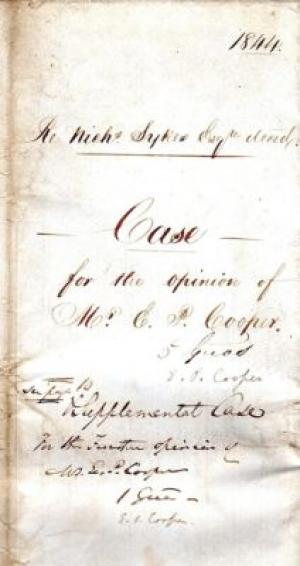 1844.
Re Nichs. Sykes Esqre decd.
Case
for the opinion of
Mr. C. P. Cooper.
5 Guas
C. P. Cooper
Supplemental Case
For the Further opinion of
Mr. C. P. Cooper
1 Gua
C. P. Cooper.